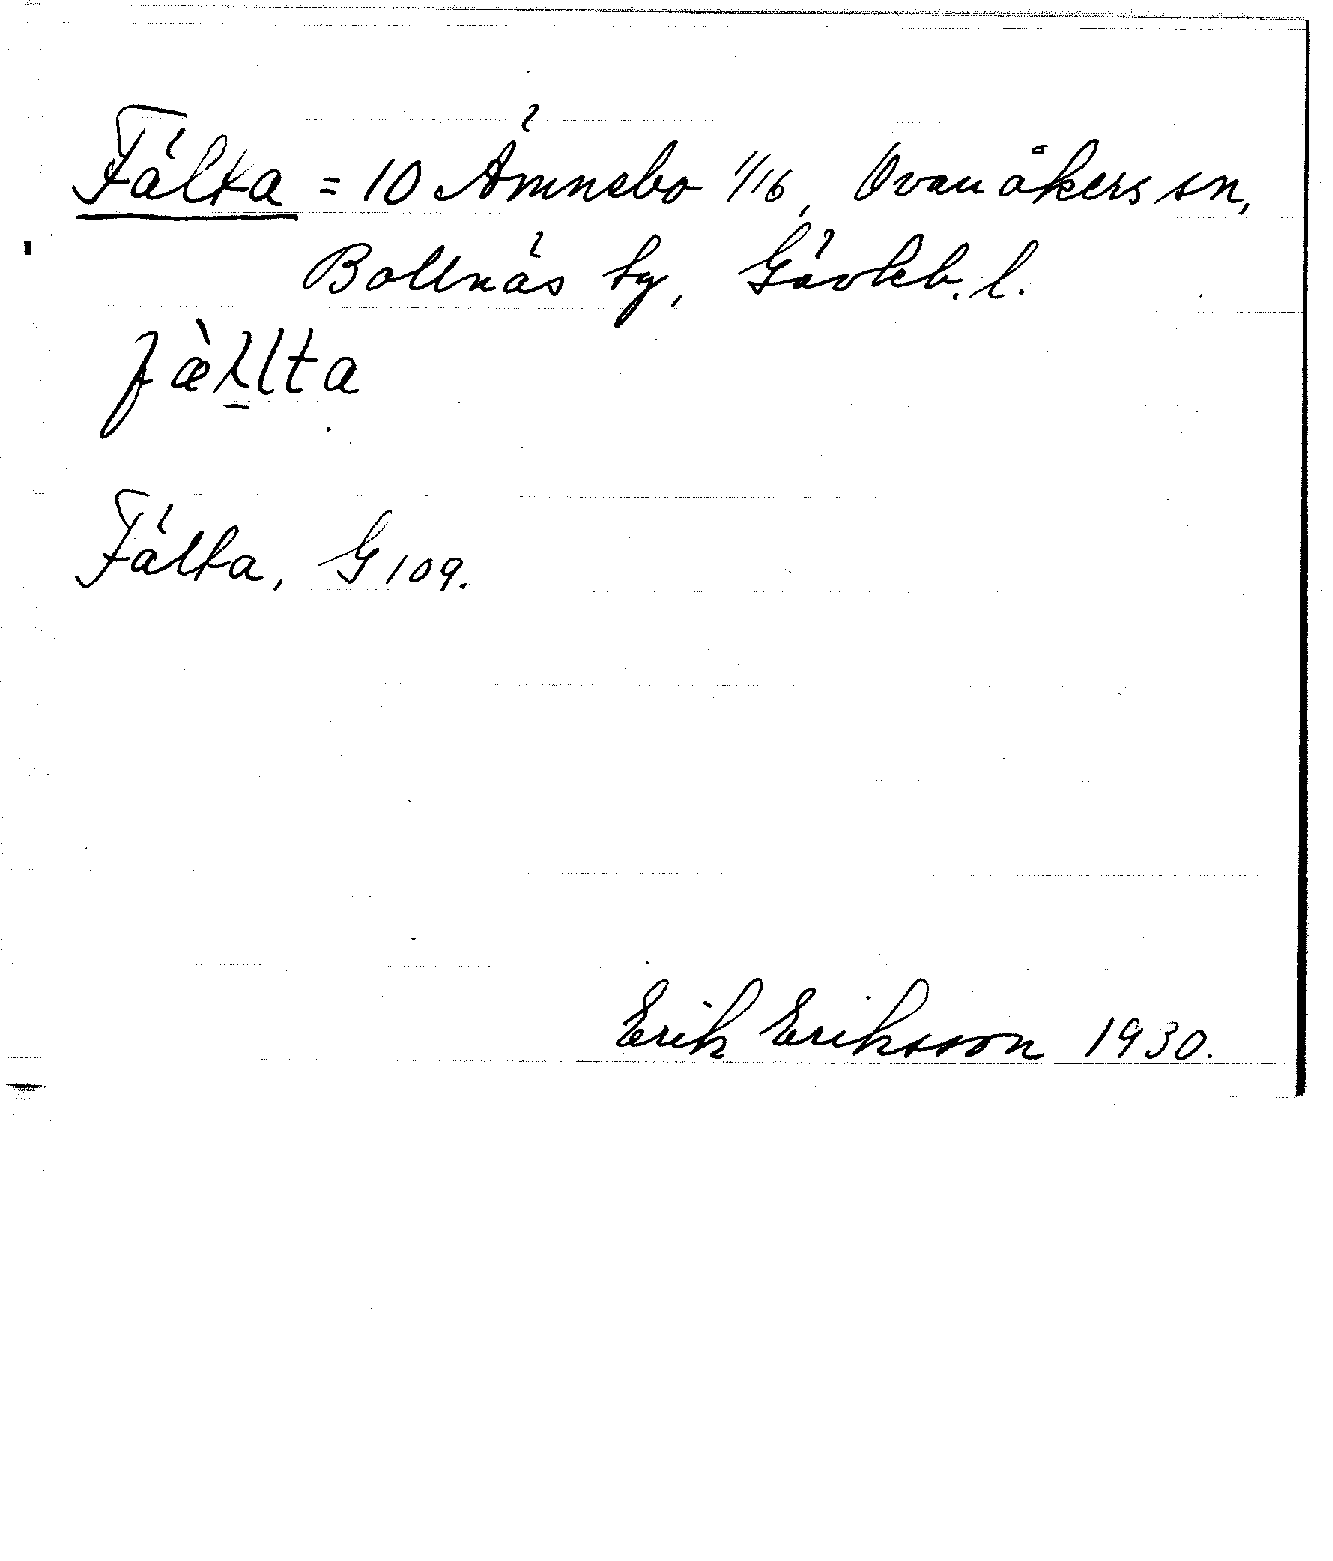 Fälta = 10 Ämnebo 1/16, Ovanåkers sn,
Bollnäs tg, Gävleb. l.
fàllta
Fälta, G 109.
Erik Eriksson 1930.